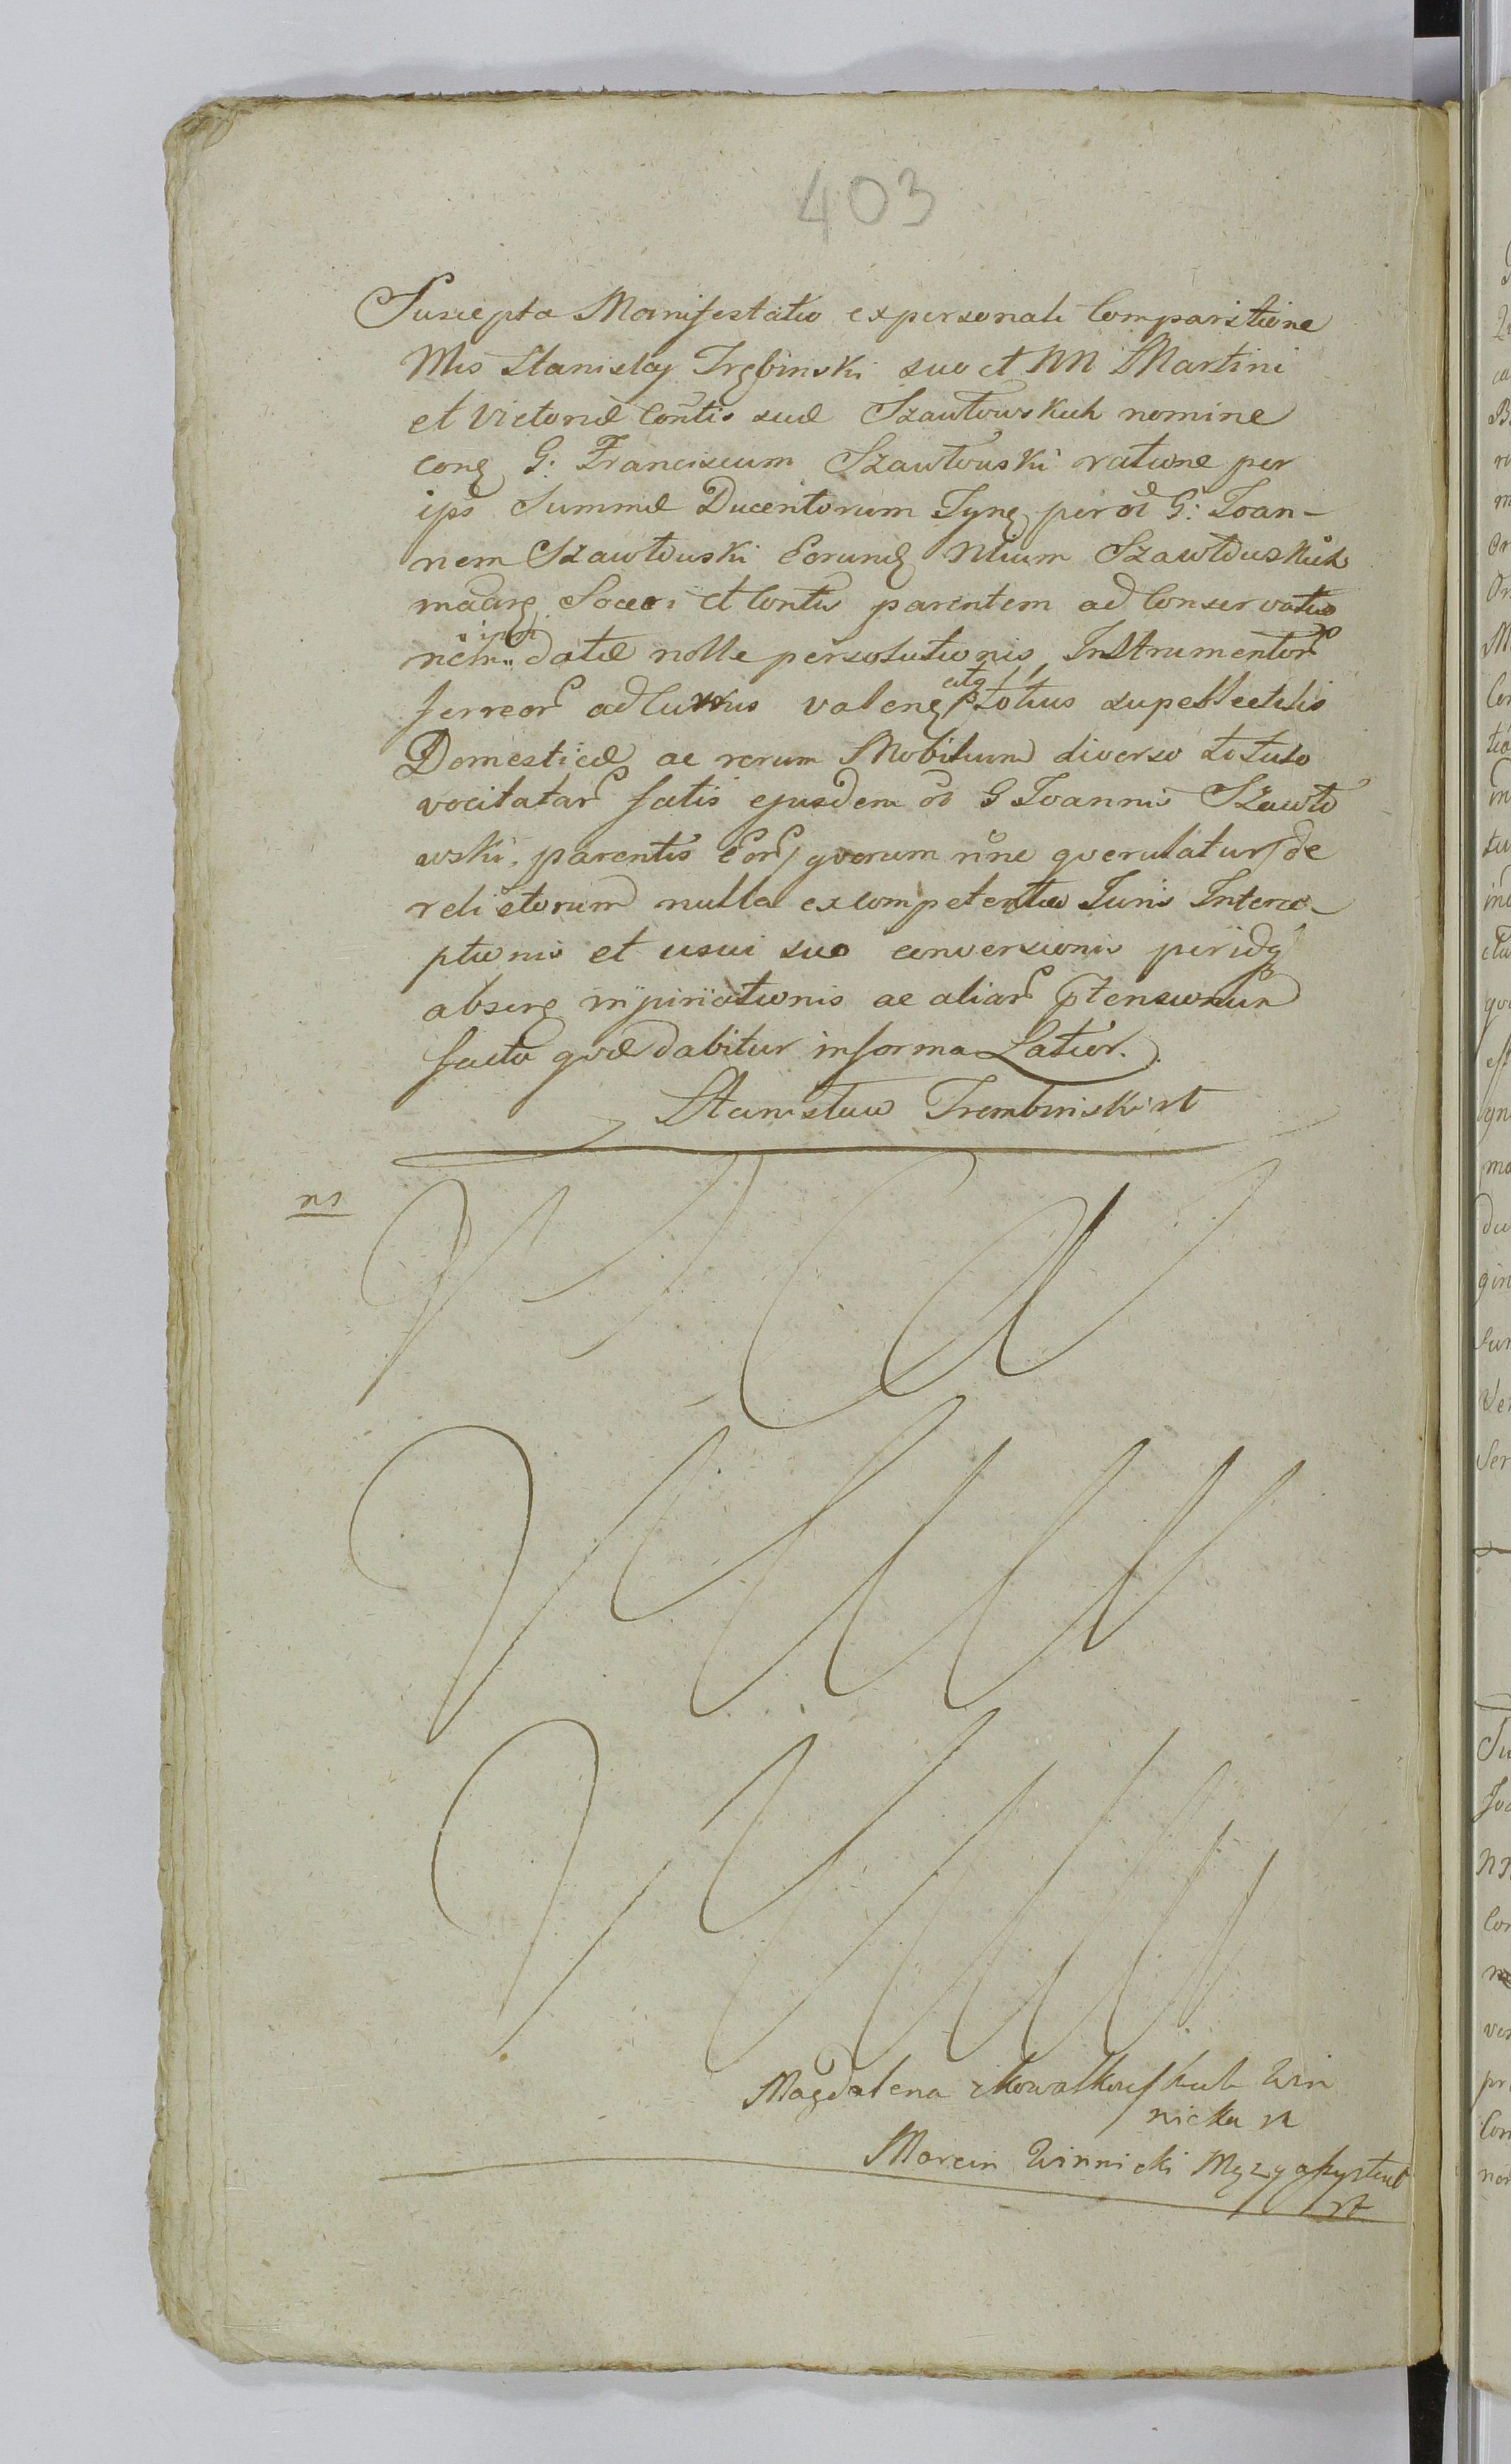 403
Suscepta Manifestatio ex personali Comparitione
Mis Stanislaj Trębinski suo et MM Martini
et Victoriæ Contis suæ Szawłowskich nomine
cong G: Franciscum Szawłowski ratione per
ips Summæ Ducentorum Tyng per ol G: Joan-
nem Szawłowski Eorund Mium Szawłowskich
Soceri et Contis parentem ad Conservatio
nem datæ nolle persolutionis, Instrumentor
ferreor ad Currus valeng totius supellectilis
Domesticæ ac rerum Mobilium diverso titulo
vocitatar fatis ejusdem ol G Joannis Szawło
wski, parentis Eor / qvorum nne qverulatur / de
relictorum nulla ex competentia Juris Interce-
ptionis et usui suo conversionis per idq
abserg inpiriationis ac aliar ptensionum
facta qvæ dabitur in forma Latior.
Stanisław Trembinski mp
ns
Magdalena z Kowalkowskich Win
nicka m
Marcin Winnicki Męzy assystent
mp